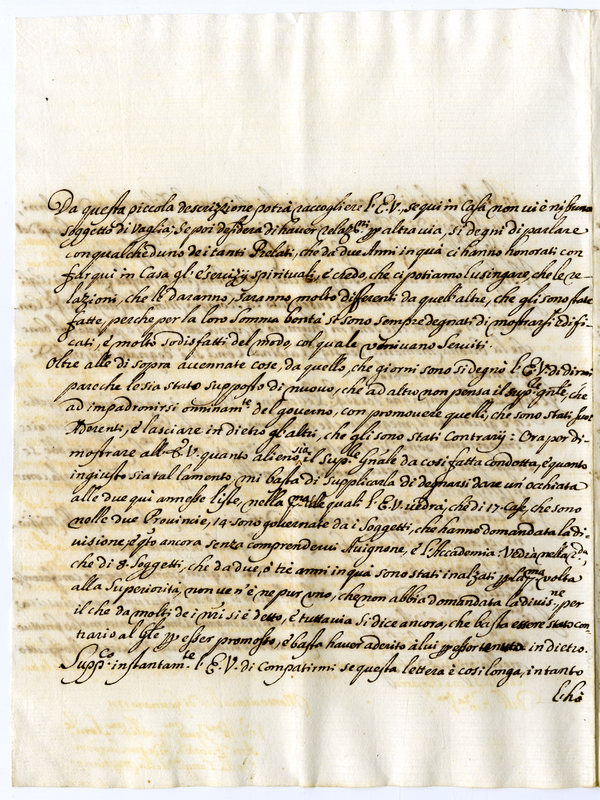 Da questa piccola descrizzione potrà raccogliere l'E.V., se qui in Casa non vi è nissuno
soggetto di vaglia; Se poi desidera di haver relaz.ni p altra via, si degni di parlare
con qualched'uno dei tanti Prelati, che da due Anni in quà ci hanno honorati con
far qui in Casa gl'esercizij spirituali, e credo, che ci potiamo lusingare, che le re-
lazioni, che le daranno, saranno molto differenti da quell'altre, che gli sono state
fatte, perche per la loro somma bontà si sono sempre degnati di mostrarsi edifi-
cati, e molto sodisfatti del modo, col quale venivano serviti.
Oltre alle di sopra accennate cose, da quello, che giorni sono si degnò l'E.V. di dirmi
pare che le sia stato supposto di nuovo, che ad altro non pensa il sup.le gnle, che
ad impadronirsi onninam.te del governo, con promovere quelli, che sono stati suoi
Aderenti, e lasciare in dietro gl'altri, che gli sono stati contrarij: Ora per di-
mostrare all'E.V. quanto alieno sia il Sup.le Gnale da cosi fatta condotta, e quanto
ingiusto sia tal lamento, mi basta di supplicarla di degnarsi dare un'occhiata
alle due qui annesse liste, nella p.ma delle quali l'E.V. vedrà, che di 17. Case, che sono
nelle due Provincie, 14. sono governate da i Soggetti, che hanno domandata la di-
visione, e qto ancora senza comprendervi Avignone, e l'Accademia: Vedrà nella 2.da,
che di 8. Soggetti, che da due, ò tre anni in quà sono stati inalzati p la p.ma volta
alla Superiorità, non ve n'è ne pur uno, che non abbia domandata la divis.ne, per
il che da molti de i nri si è detto, e tuttavia si dice ancora, che basta essere stato con-
trario al Gle p esser promosso, e basta haver aderito à lui p esser tenuto in dietro.
Supp.co instantam.te l'E.V. di compatirmi se questa lettera è cosi longa, in tanto
l'hò